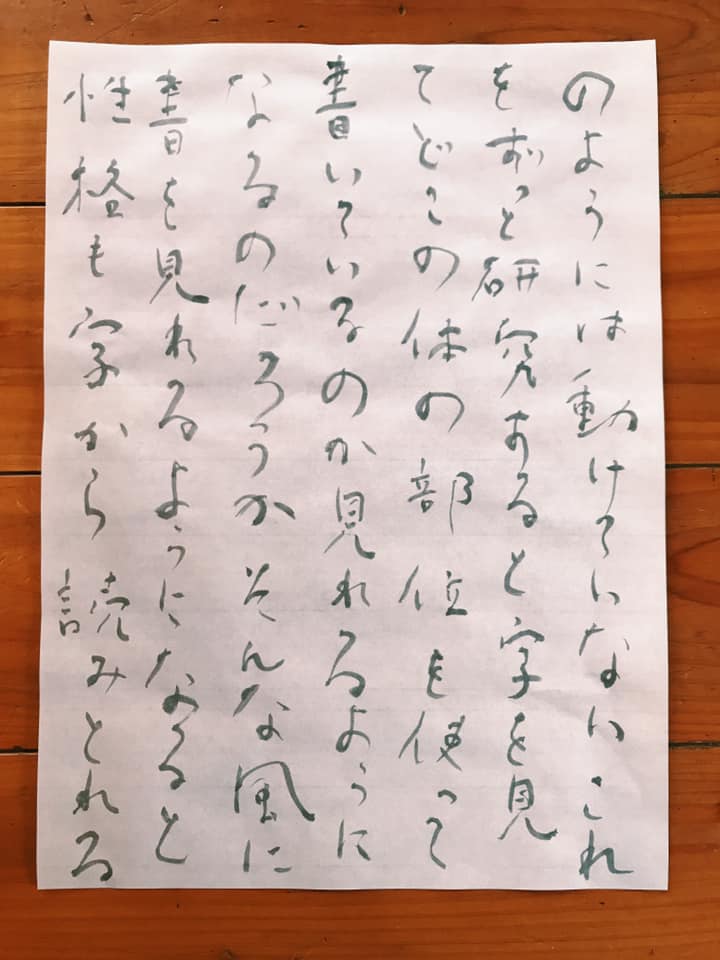 のようには動けていないこれ
をずっと研究すると字を見
てどこの体の部位を使って
書いているのか見れるように
なるのだろうかそんな風に
書を見れるようになると
性格も字から読みとれる